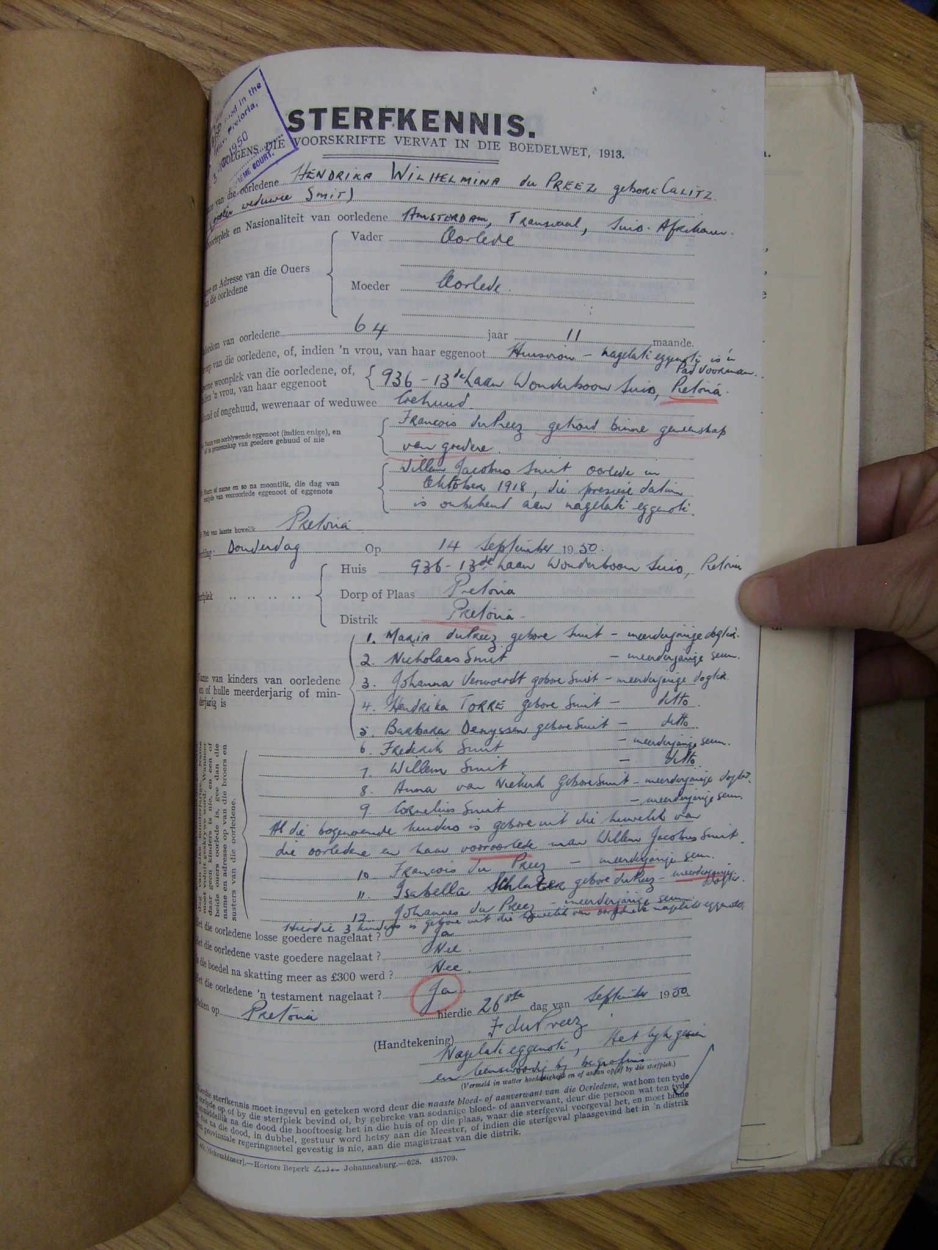 in the
Pretoria,
1950
COURT.
STERFKENNIS.
VOLGENS DIE VOORSKRIFTE VERVAT IN DIE BOEDELWET, 1913.
van die oorledene HENDRIKA WILHELMINA du PREEZ gebore CALITZ
weduwee Smit)
en Nasionaliteit van oorledene AMSTERDAM, Transvaal, Suid-Afrikaner.
Vader Oorlede
en Adresse van die Ouers
van die oorledene
Moeder Oorlede.
van oorledene 64 jaar 11 maande.
van die oorledene, of, indien 'n vrou, van haar eggenoot Huisvrou - nagelate eggenoot is 'n
Pad Voorman.
woonplek van die oorledene, of,
'n vrou, van haar eggenoot 936 - 13de Laan Wonderboom Suid, Pretoria.
of ongehuud, wewenaar of weduwee Gehuud
Naam van oorblywende eggenoot (indien enige), en
of in gemeenskap van goedere gehuud of nie
Francois du Preez getroud binne gemeenskap
van goedere.
Willem Jacobus Smit oorlede in
Oktober 1918, die presiese datum
is onbekend aan nagelate eggenoot.
Plek van laaste huwelik Pretoria
Donderdag Op 14 September 1950.
Huis 936 - 13de Laan Wonderboom Suid, Pretoria
Dorp of Plaas Pretoria
Distrik Pretoria.
Name van kinders van oorledene
en of hulle meerderjarig of min-
derjarig is
1. Maria du Preez gebore Smit - meerderjarige dogter.
2. Nicholaas Smit - meerderjarige seun.
3. Johanna Verwoerdt gebore Smit - meerderjarige dogter
4. Hendrika TORRE gebore Smit - ditto.
5. Barbara Denyssen gebore Smit - ditto
6. Frederik Smit - meerderjarige seun.
7. Willem Smit - ditto.
8. Anna van Niekerk gebore Smit - meerderjarige dogter.
9. Cornelius Smit - meerderjarige seun.
daar geen kinders is nie, en een of
beide ouers oorlede is, gee dan die
name en adresse op van die broers en
susters van die oorledene.
Al die bogenoemde kinders is gebore uit die huwelik van
die oorledene en haar vooroorlede man Willem Jacobus Smit
10. Francois du Preez - meerderjarige seun.
11. Isabella Schlater gebore du Preez - meerderjarige dogter.
12. Johannes du Preez - meerderjarige seun
Hierdie 3 kinders is gebore uit die huwelik van oorledene nagelate eggenoot.
die oorledene losse goedere nagelaat? Ja
die oorledene vaste goedere nagelaat? Nee
die boedel na skatting meer as £300 werd? Nee.
die oorledene 'n testament nagelaat? Ja
op Pretoria hierdie 26ste dag van September 1950
(Handtekening) F du Preez
Nagelate eggenoot, Het lyk gesien
en teenswoordig by begrafnis
(Vermeld in watter hoedanigheid en of aanwesig by die sterfplek)
sterfkennis moet ingevul en geteken word deur die naaste bloed- of aanverwant van die Oorledene, wat hom ten tyde
op of by die sterfplek bevind of, by gebreke van sodanige bloed- of aanverwant, deur die persoon wat ten tyde
na die dood die hooftoesig het in die huis of op die plaas, waar die sterfgeval voorgeval het, en moet binne
na die dood, in dubbel, gestuur word hetsy aan die Meester, of indien die sterfgeval plaasgevind het in 'n distrik
provinsiale regeringsetel gevestig is nie, aan die magistraat van die distrik.
Hortors Beperk Johannesburg.—628. 435709.